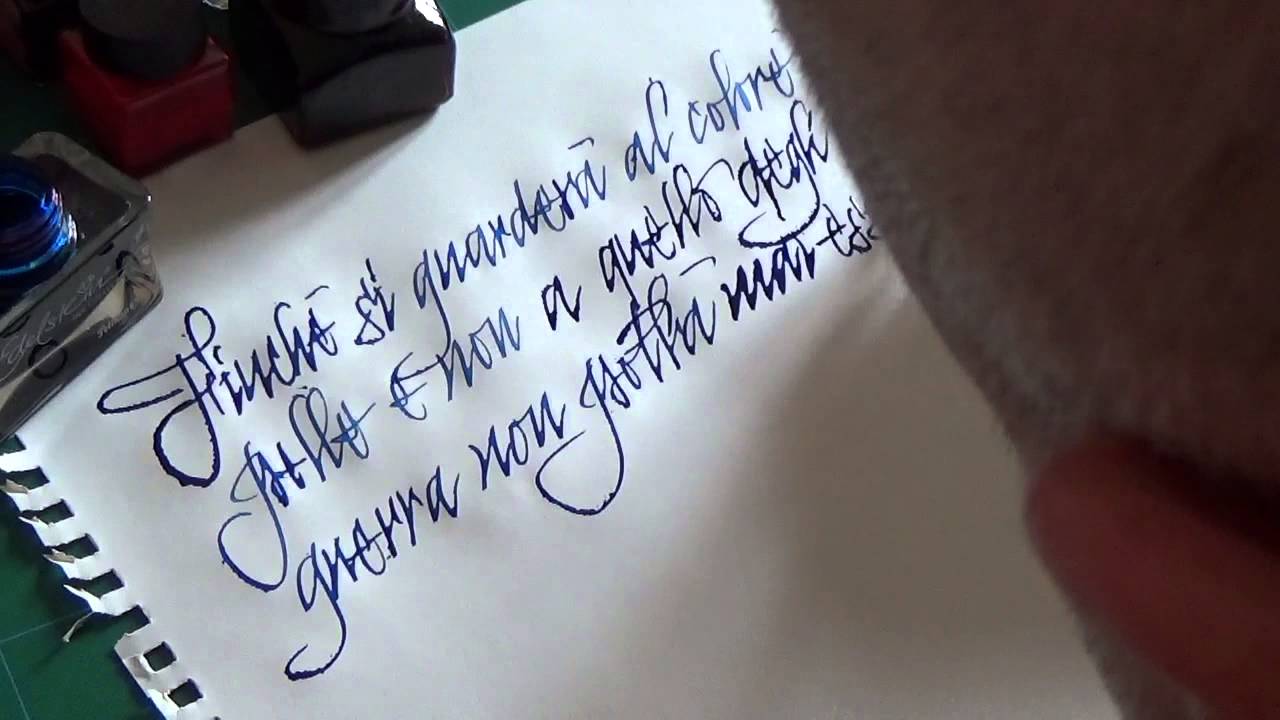 Finchè si guarderà al colore
pelle e non a quello degli
guerra non potrà mai es